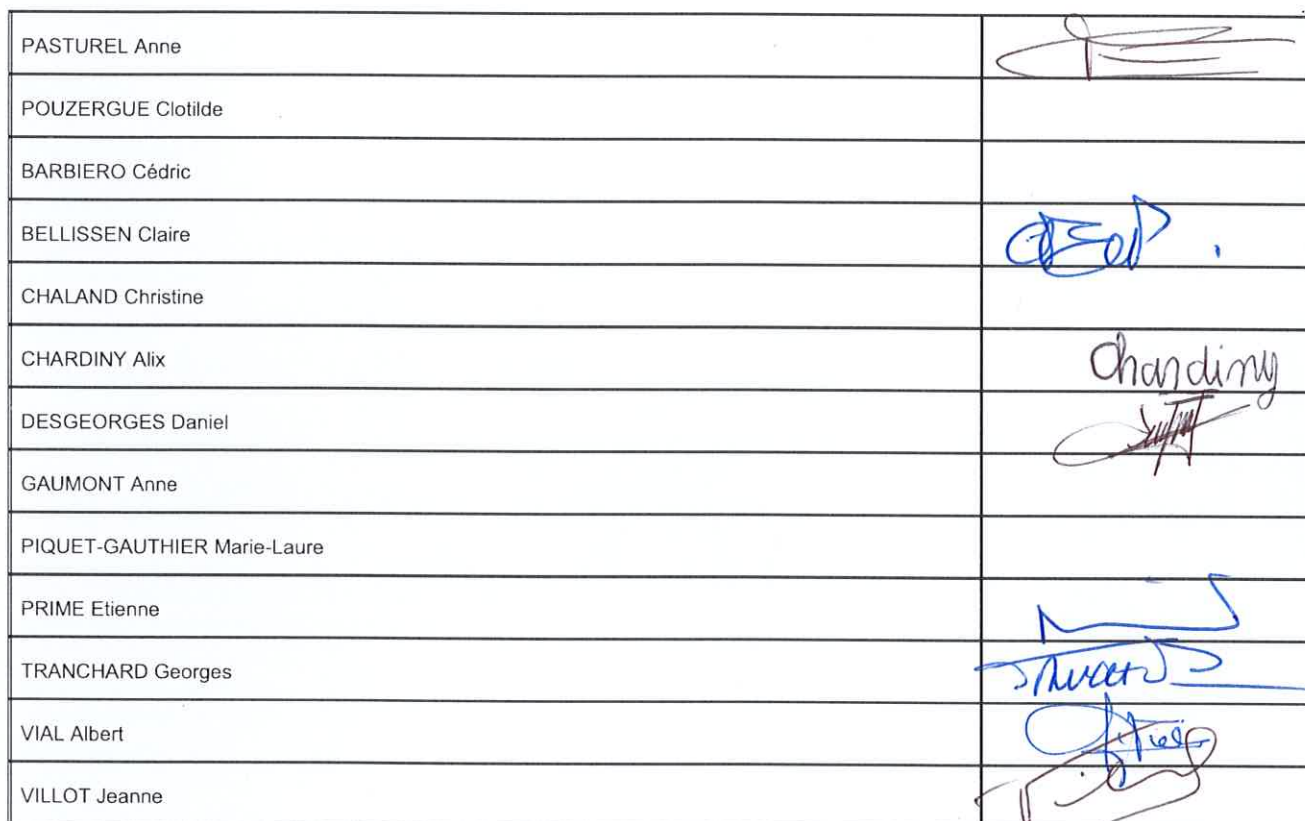 PASTUREL Anne
POUZERGUE Clotilde
BARBIERO Cédric
BELLISSEN Claire
CHALAND Christine
CHARDINY Alix
Chardiny
DESGEORGES Daniel
GAUMONT Anne
PIQUET-GAUTHIER Marie-Laure
PRIME Etienne
TRANCHARD Georges
VIAL Albert
VILLOT Jeanne